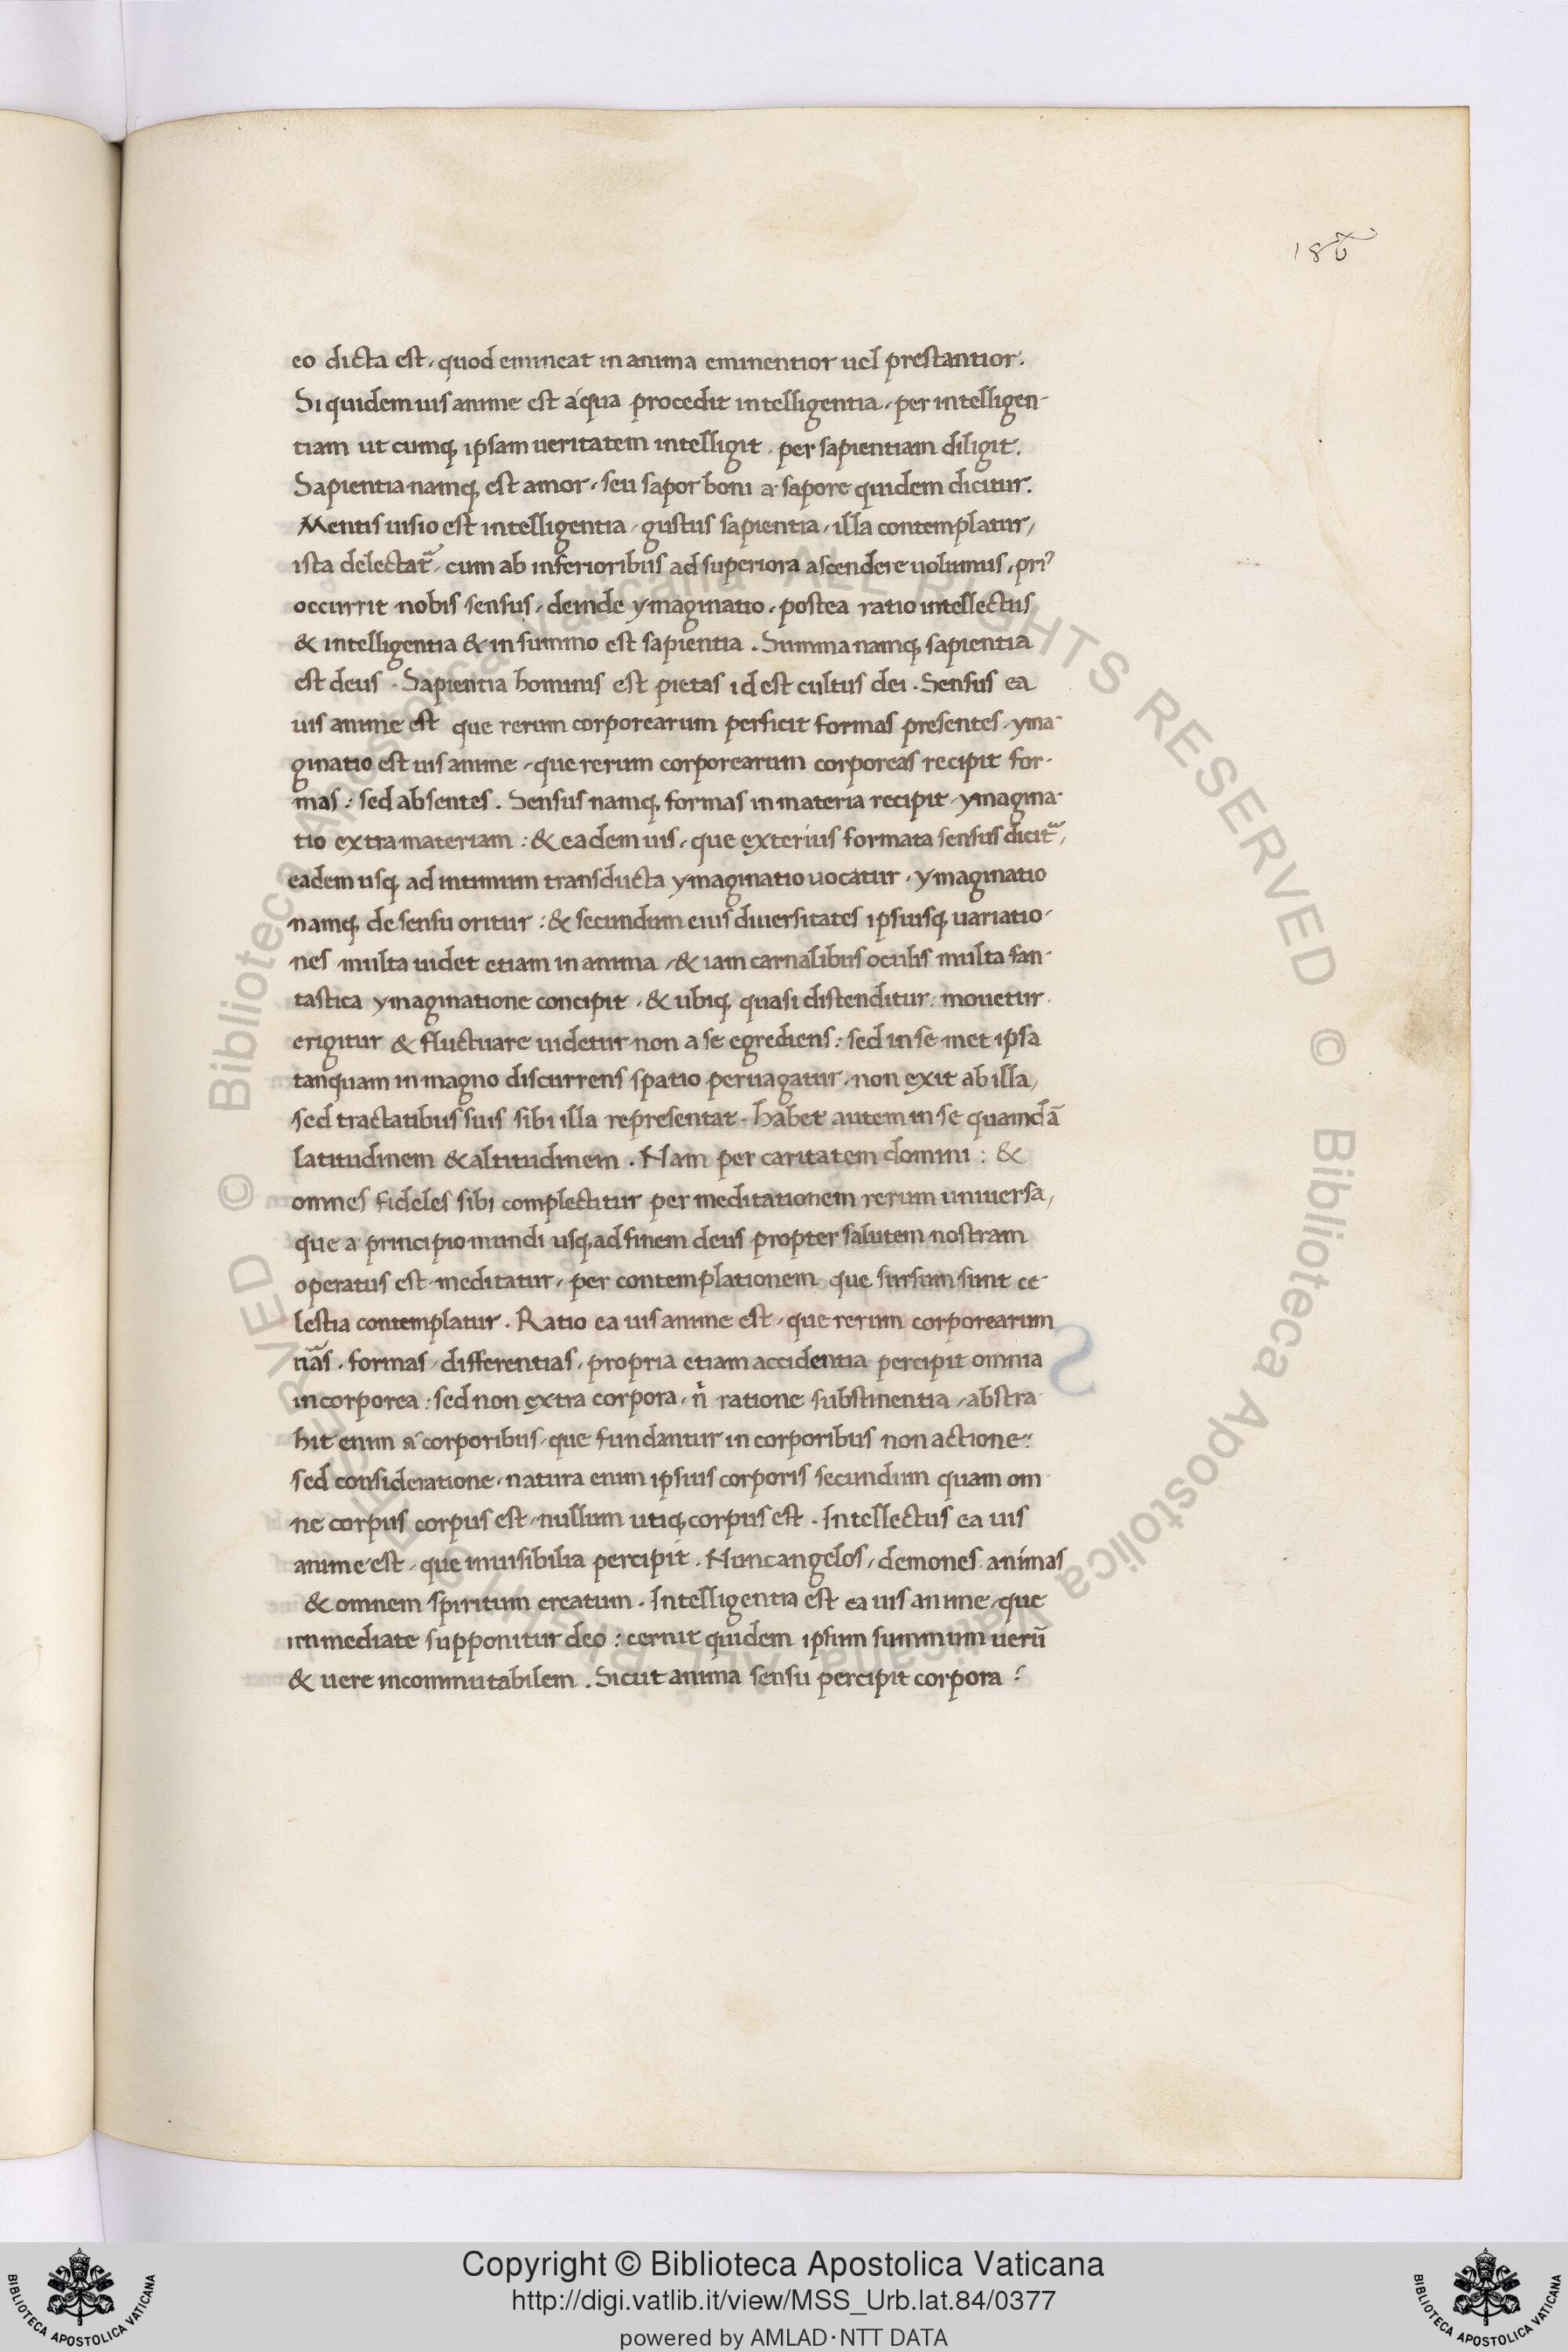 186
eo dicta est, quod emineat in anima eminentior uel prestantior.
Si quidem uis anime est a qua procedit intelligentia, per intelligen-
tiam ut cumq; ipsam ueritatem intelligit, per sapientiam diligit.
Sapientia namq; est amor, seu sapor boni a sapore quidem dicitur.
Mentis uisio est intelligentia, gustus sapientia, illa contemplatur,
ista delectat᷑, cum ab inferioribus ad superiora ascendere uolumus, pri⁹
occurrit nobis sensus, deinde ymaginatio, postea ratio intellectus
& intelligentia & in summo est sapientia. Summa namq; sapientia
est deus. Sapientia hominis est pietas id est cultus dei. Sensus ea
uis anime est que rerum corporearum perficit formas presentes, yma-
ginatio est uis anime, que rerum corporearum corporeas recipit for-
mas: sed absentes. Sensus namq; formas in materia recipit, ymagina-
tio extra materiam: & eadem uis, que exterius formata sensus dicit᷑,
eadem usq; ad intimum transducta ymaginatio uocatur. ymaginatio
namq; de sensu oritur: & secundum eius diuersitates ipsiusq; uariatio-
nes multa uidet etiam in anima, & iam carnalibus oculis multa fan-
tastica ymaginatione concipit, & ubiq; quasi distenditur, mouetur.
erigitur & fluctuare uidetur non a se egrediens: sed in se met ipsa
tanquam in magno discurrens spatio peruagatur, non exit ab illa,
sed tractatibus suis sibi illa representat. habet autem in se quamdā
latitudinem & altitudinem. Nam per caritatem domini: &
omnes fideles sibi complectitur per meditationem rerum uniuersa,
que a principio mundi usq; ad finem deus propter salutem nostram
operatus est meditatur, per contemplationem que sursum sunt ce-
lestia contemplatur. Ratio ea uis anime est, que rerum corporearum
formas, differentias, propria etiam accidentia percipit omnia
incorporea: sed non extra corpora, ratione substinentia, abstra-
hit enim a corporibus, que fundantur in corporibus non actione:
sed consideratione, natura enim ipsius corporis secundum quam om-
ne corpus corpus est, nullum utiq; corpus est. Intellectus ea uis
anime est, que inuisibilia percipit. Nunc angelos, demones animas
& omnem spiritum creatum. Intelligentia est ea uis anime, que
immediate supponitur deo: cernit quidem ipsum summum uerū
& uere incommutabilem. Sicut anima sensu percipit corpora:
© Biblioteca Apostolica Vaticana ALL RIGHTS RESERVED
© Biblioteca Apostolica Vaticana ALL RIGHTS RESERVED
Copyright © Biblioteca Apostolica Vaticana
http://digi.vatlib.it/view/MSS_Urb.lat.84/0377
powered by AMLAD·NTT DATA
BIBLIOTECA APOSTOLICA VATICANA
BIBLIOTECA APOSTOLICA VATICANA